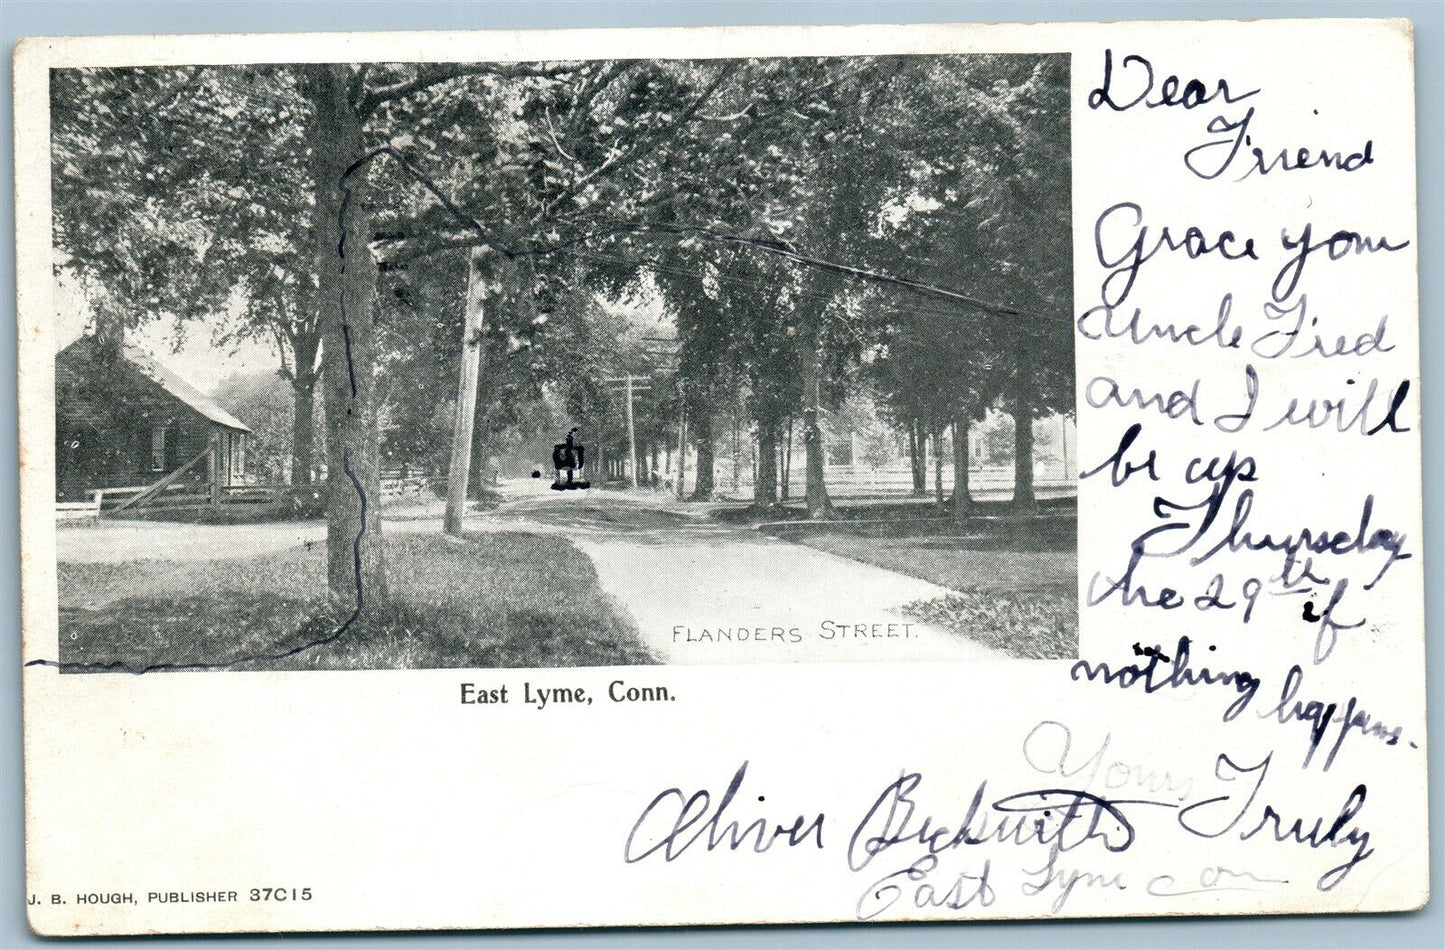 Dear
Friend
Grace your
Uncle Fred
and I will
be up
Thursday
the 29th if
nothing
happens.
Yours Truly
Oliver Beckwith
East Lyme Con
FLANDERS STREET.
East Lyme, Conn.
J. B. HOUGH, PUBLISHER 37C15